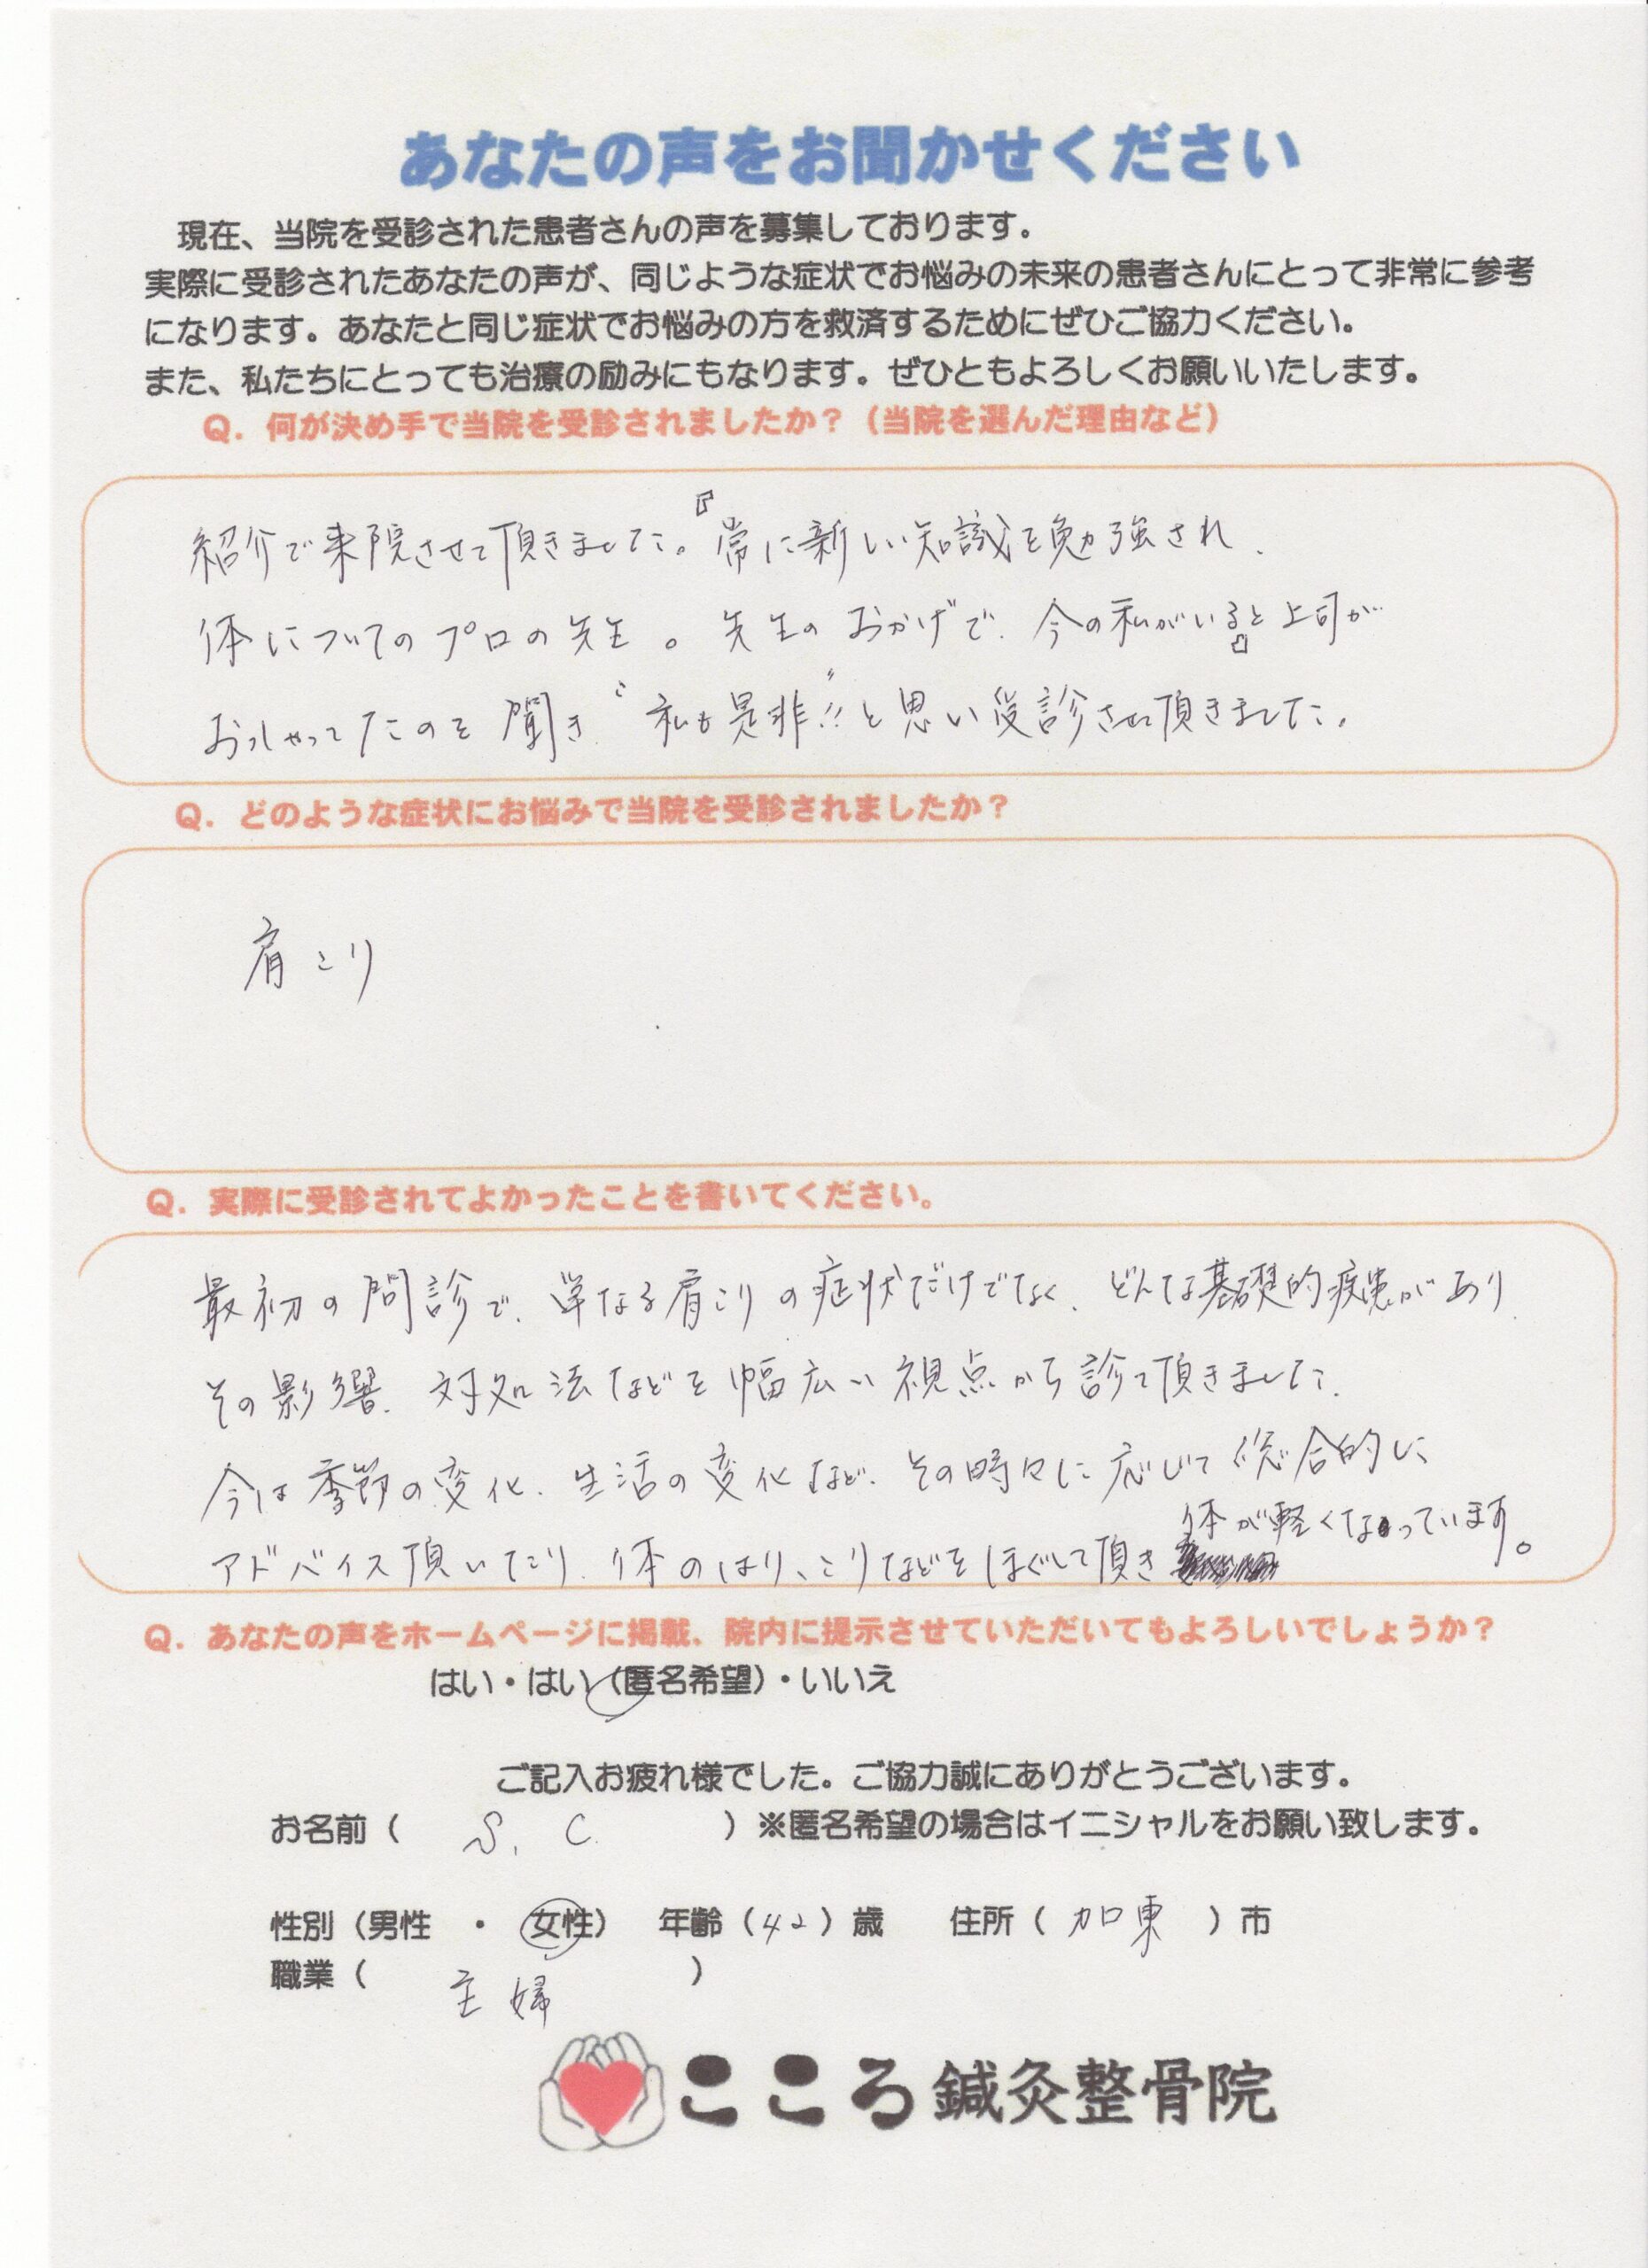 あなたの声をお聞かせください
現在、当院を受診された患者さんの声を募集しております。
実際に受診されたあなたの声が、同じような症状でお悩みの未来の患者さんにとって非常に参考
になります。あなたと同じ症状でお悩みの方を救済するためにぜひご協力ください。
また、私たちにとっても治療の励みにもなります。ぜひともよろしくお願いいたします。
Q. 何が決め手で当院を受診されましたか？（当院を選んだ理由など）
紹介で来院させて頂きました。『常に新しい知識を勉強され、
体についてのプロの先生。先生のおかげで、今の私がいる』と上司が
おっしゃってたのを聞き“私も是非!!”と思い受診させて頂きました。
Q. どのような症状にお悩みで当院を受診されましたか？
肩こり
Q. 実際に受診されてよかったことを書いてください。
最初の問診で、単なる肩こりの症状だけでなく、どんな基礎的疾患があり、
その影響、対処法などを幅広い視点から診て頂きました。
今は季節の変化、生活の変化など、その時々に応じて総合的に
アドバイス頂いたり、体のはり、こりなどをほぐして頂き 体が軽くなっています。
Q. あなたの声をホームページに掲載、院内に提示させていただいてもよろしいでしょうか？
はい・はい（匿名希望）・いいえ
ご記入お疲れ様でした。ご協力誠にありがとうございます。
お名前（ S. C. ）※匿名希望の場合はイニシャルをお願い致します。
性別（男性 ・ 女性） 年齢（42）歳 住所（ 加東 ）市
職業（ 主婦 ）
こころ鍼灸整骨院